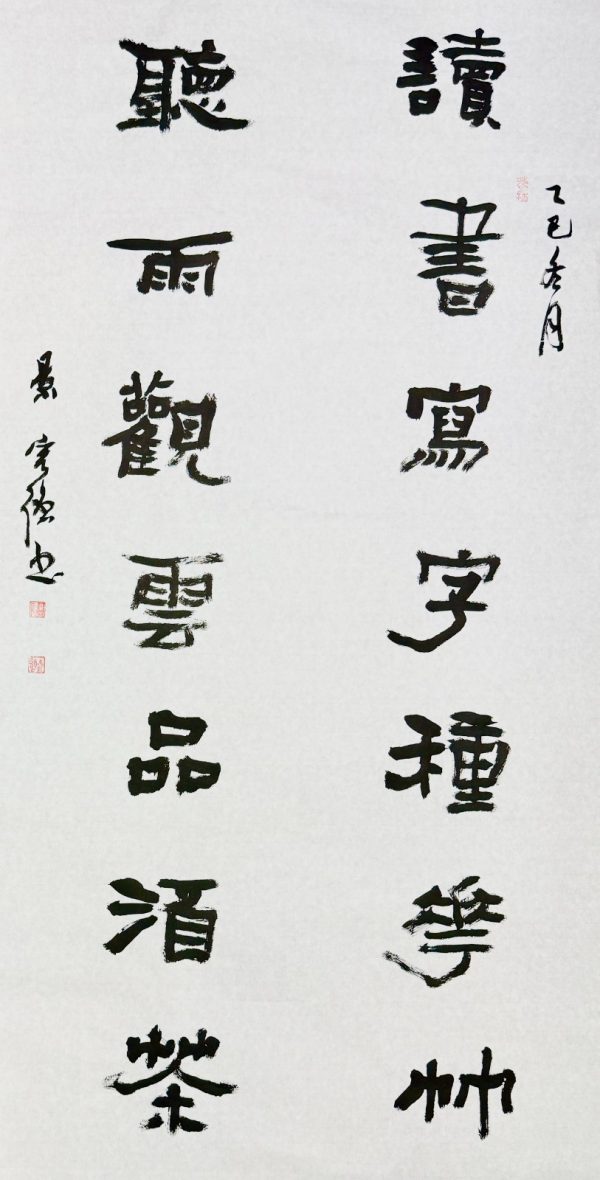 乙巳冬月
讀書寫字種華艸
聽雨觀雲品酒茶
景